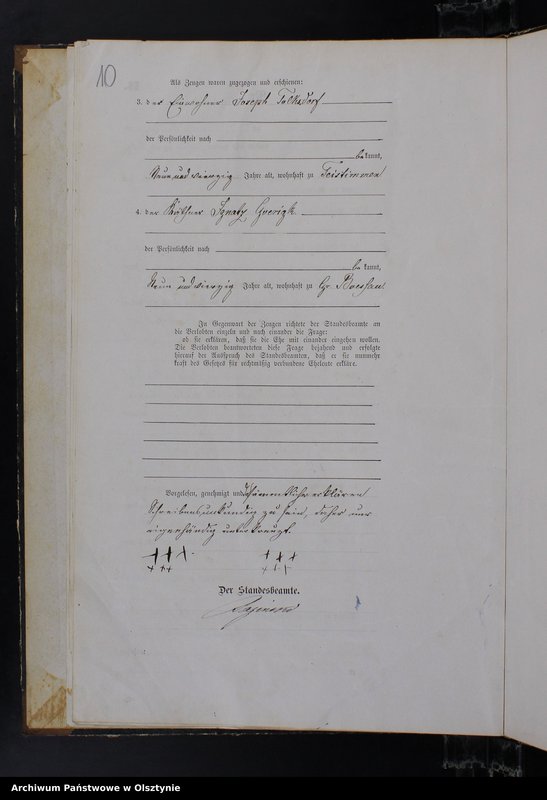 10
Als Zeugen waren zugezogen und erschienen:
3. der Einwohner Joseph Tolksdorf
der Persönlichkeit nach
bekannt,
Neun und vierzig Jahre alt, wohnhaft zu Teistimmen
4. der Käthner Ignatz
der Persönlichkeit nach
bekannt,
Neun und vierzig Jahre alt, wohnhaft zu Gr. Boessau
In Gegenwart der Zeugen richtete der Standesbeamte an
die Verlobten einzeln und nach einander die Frage:
ob sie erklären, daß sie die Ehe mit einander eingehen wollen.
Die Verlobten beantworteten diese Frage bejahend und erfolgte
hierauf der Ausspruch des Standesbeamten, daß er sie nunmehr
kraft des Gesetzes für rechtmäßig verbundene Eheleute erkläre.
Vorgelesen, genehmigt und sämmtliche erklären
Schreibensunkundig zu sein, daher nur
eigenhändig unterkreuzt.
+++ +++
+++ +++
Der Standesbeamte.
Archiwum Państwowe w Olsztynie